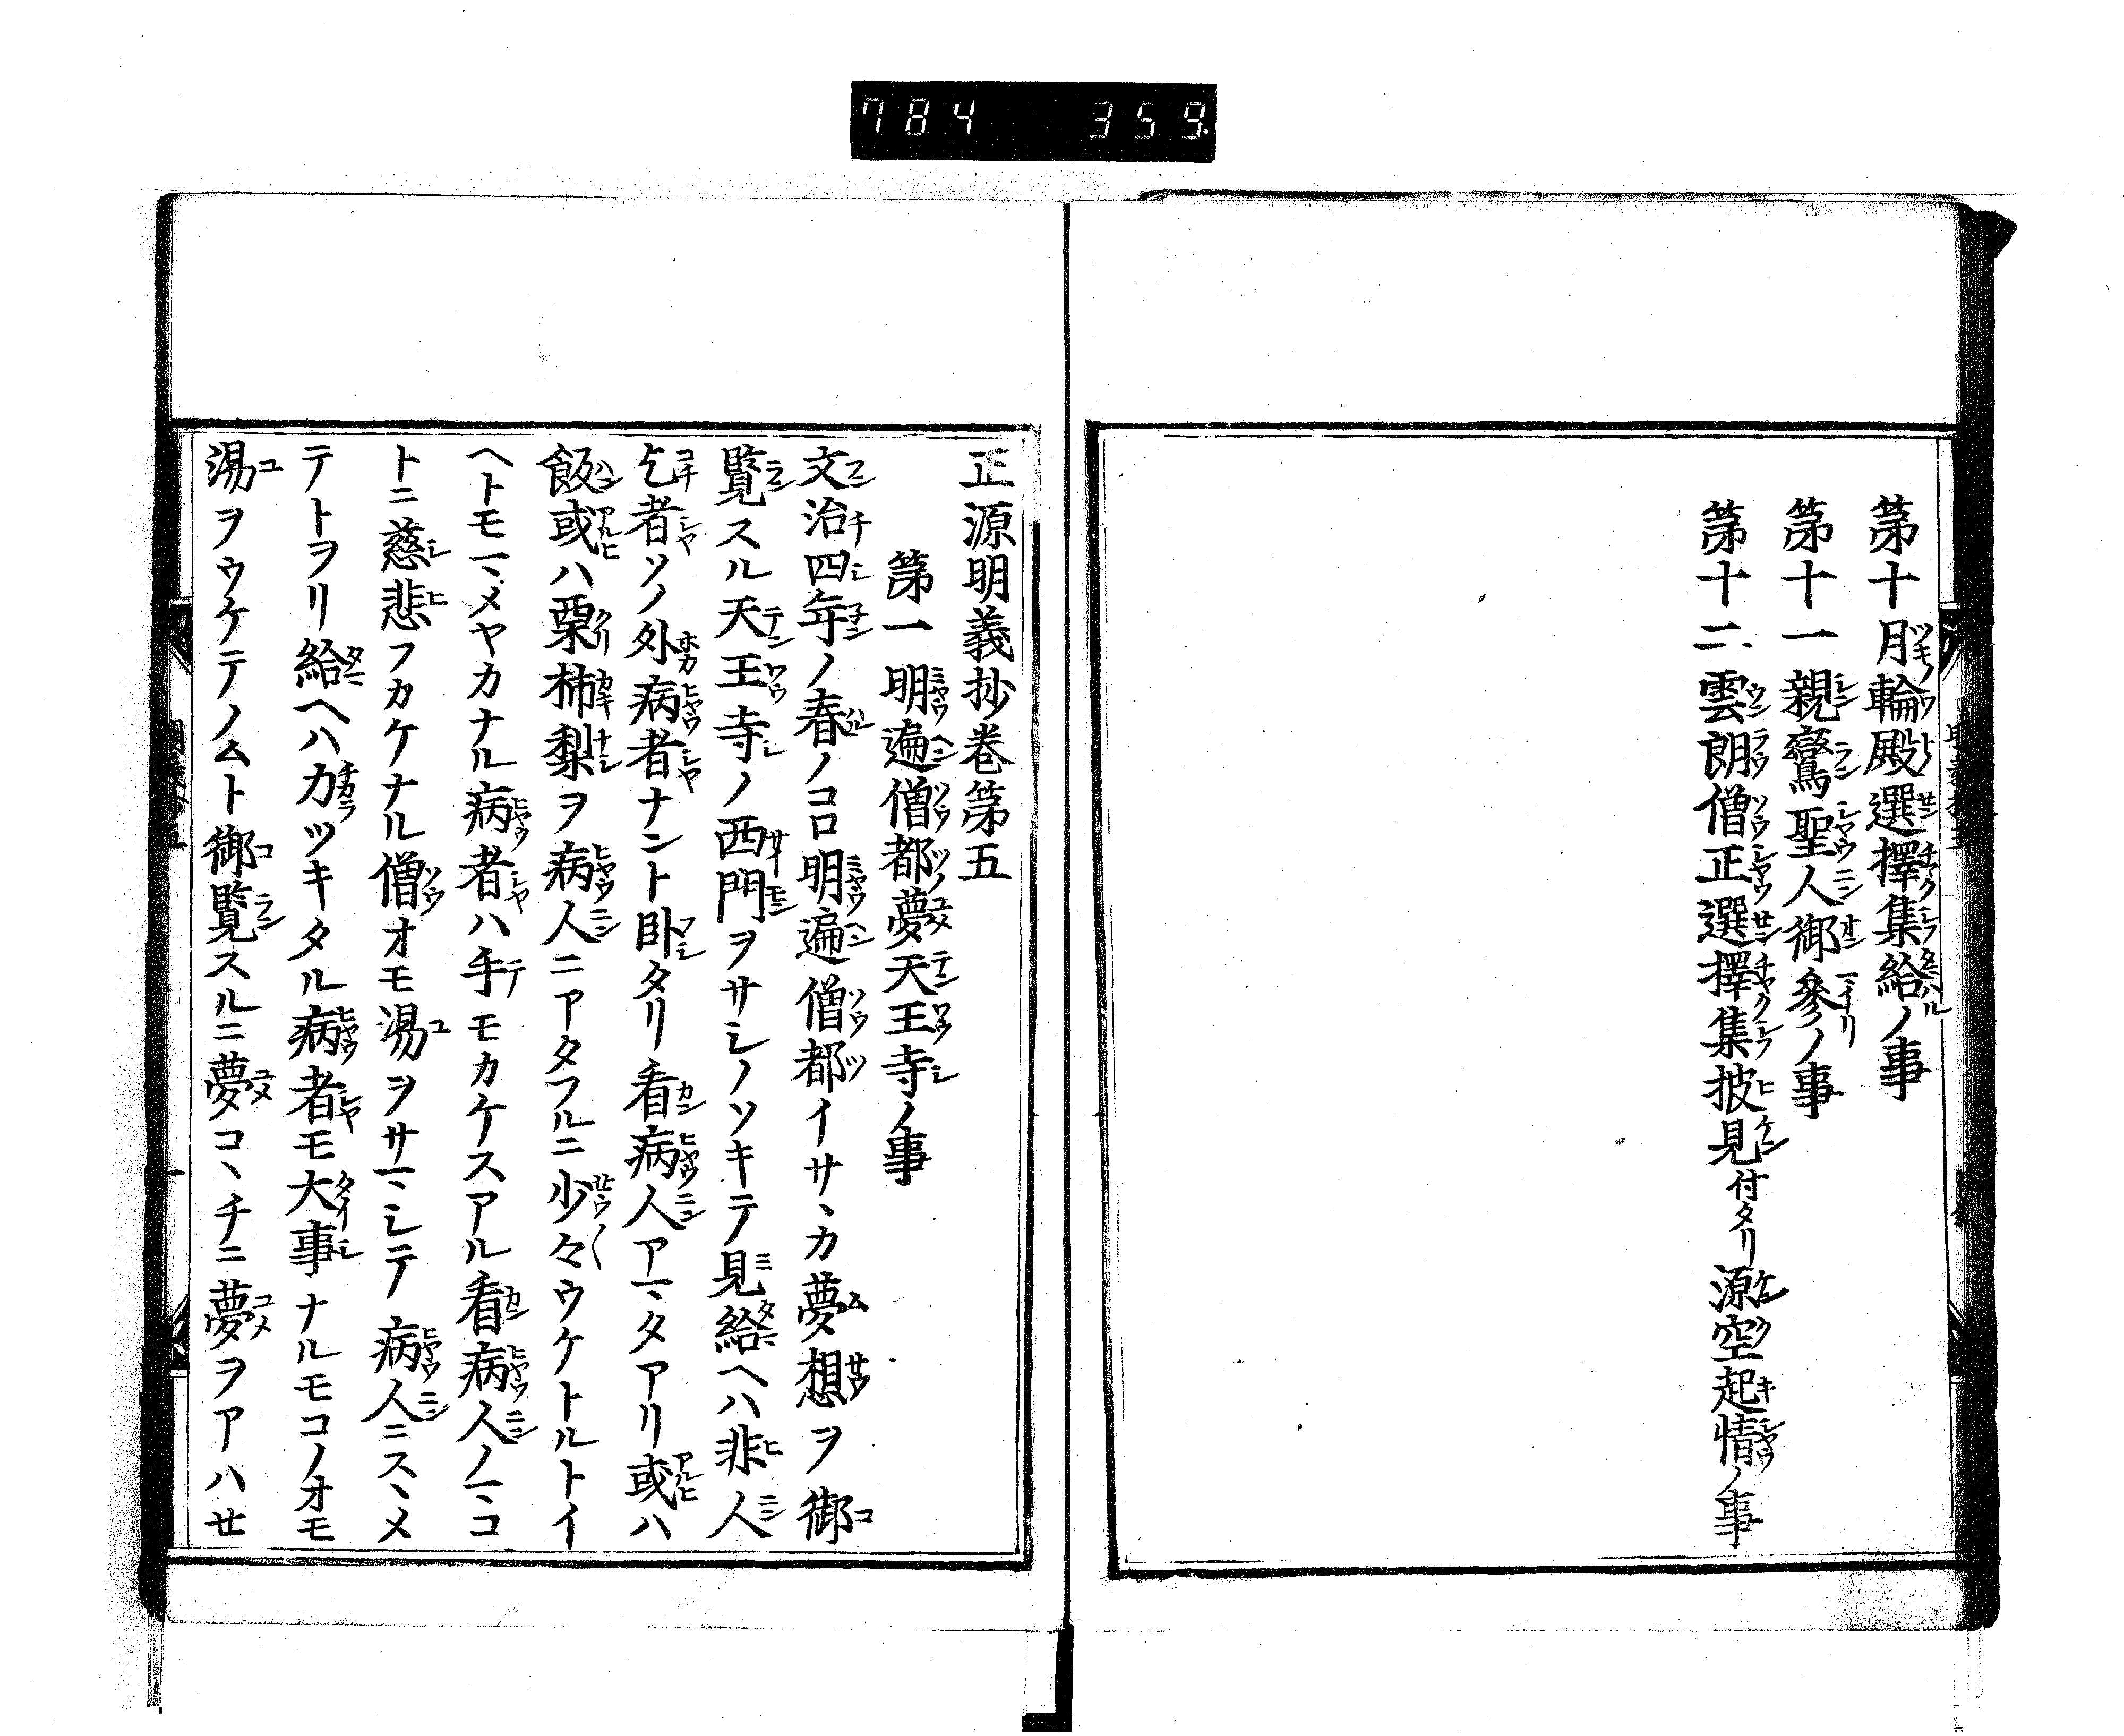 784 359
第十月輪殿選擇集給ノ事
第十一親鸞聖人御參ノ事
第十二雲朗僧正選擇集披見付タリ源空起情ノ事
正源明義抄卷第五
第一明遍僧都夢天王寺ノ事
文治四年ノ春ノコロ明遍僧都イサヽカ夢想ヲ御
覽スル天王寺ノ西門ヲサシノソキテ見給ヘハ非人
乞者ソノ外病者ナント臥タリ看病人アマタアリ或ハ
飯或ハ栗柿梨ヲ病人ニアタフルニ少々ウケトルトイ
ヘトモマメヤカナル病者ハ手モカケスアル看病人ノマコ
トニ慈悲フカケナル僧オモ湯ヲサマシテ病人ニスヽメ
テトヲリ給ヘハ力ツキタル病者モ大事ナルモコノオモ
湯ヲウケテノムト御覽スルニ夢コヽチニ夢ヲアハセ